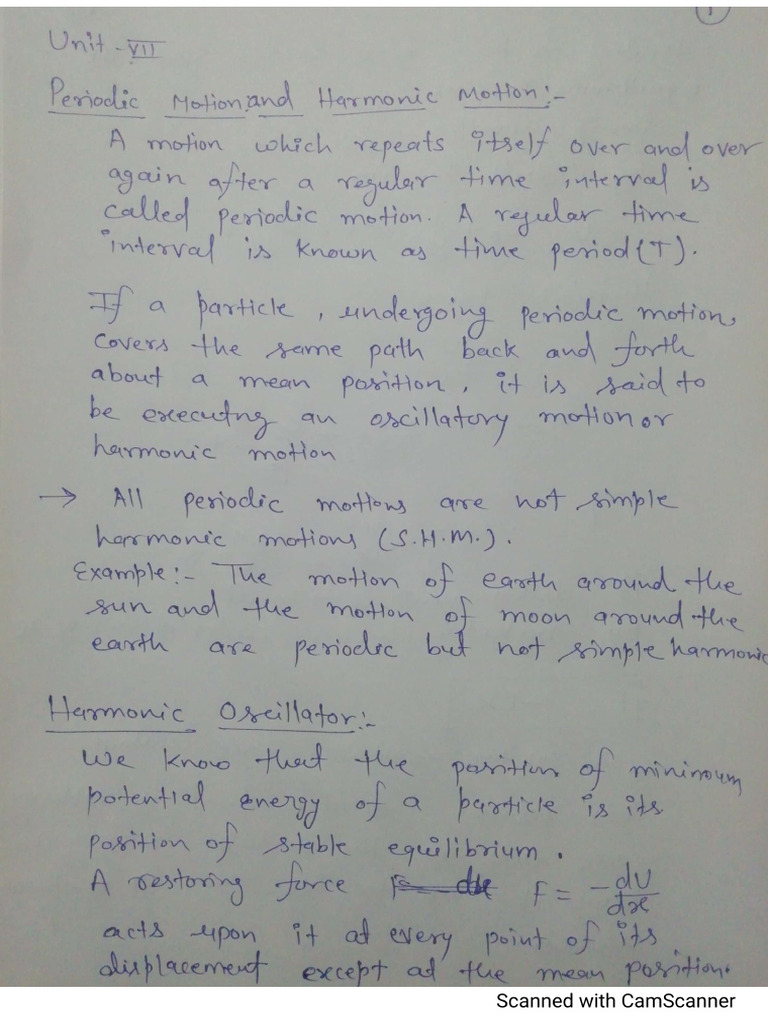 1
Unit - VII
Periodic Motion and Harmonic Motion :-
A motion which repeats itself over and over
again after a regular time interval is
called periodic motion. A regular time
interval is known as time period (T).
If a particle, undergoing periodic motion,
covers the same path back and forth
about a mean position, it is said to
be executng an oscillatory motion or
harmonic motion
→ All periodic motions are not simple
harmonic motions (S.H.M.).
Example :- The motion of earth around the
sun and the motion of moon around the
earth are periodic but not simple harmonic
Harmonic Oscillator :-
We know that the position of minimum
potential energy of a particle is its
position of stable equilibrium.
A restoring force F = -dU/dx
acts upon it at every point of its
displacement except at the mean position.
Scanned with CamScanner